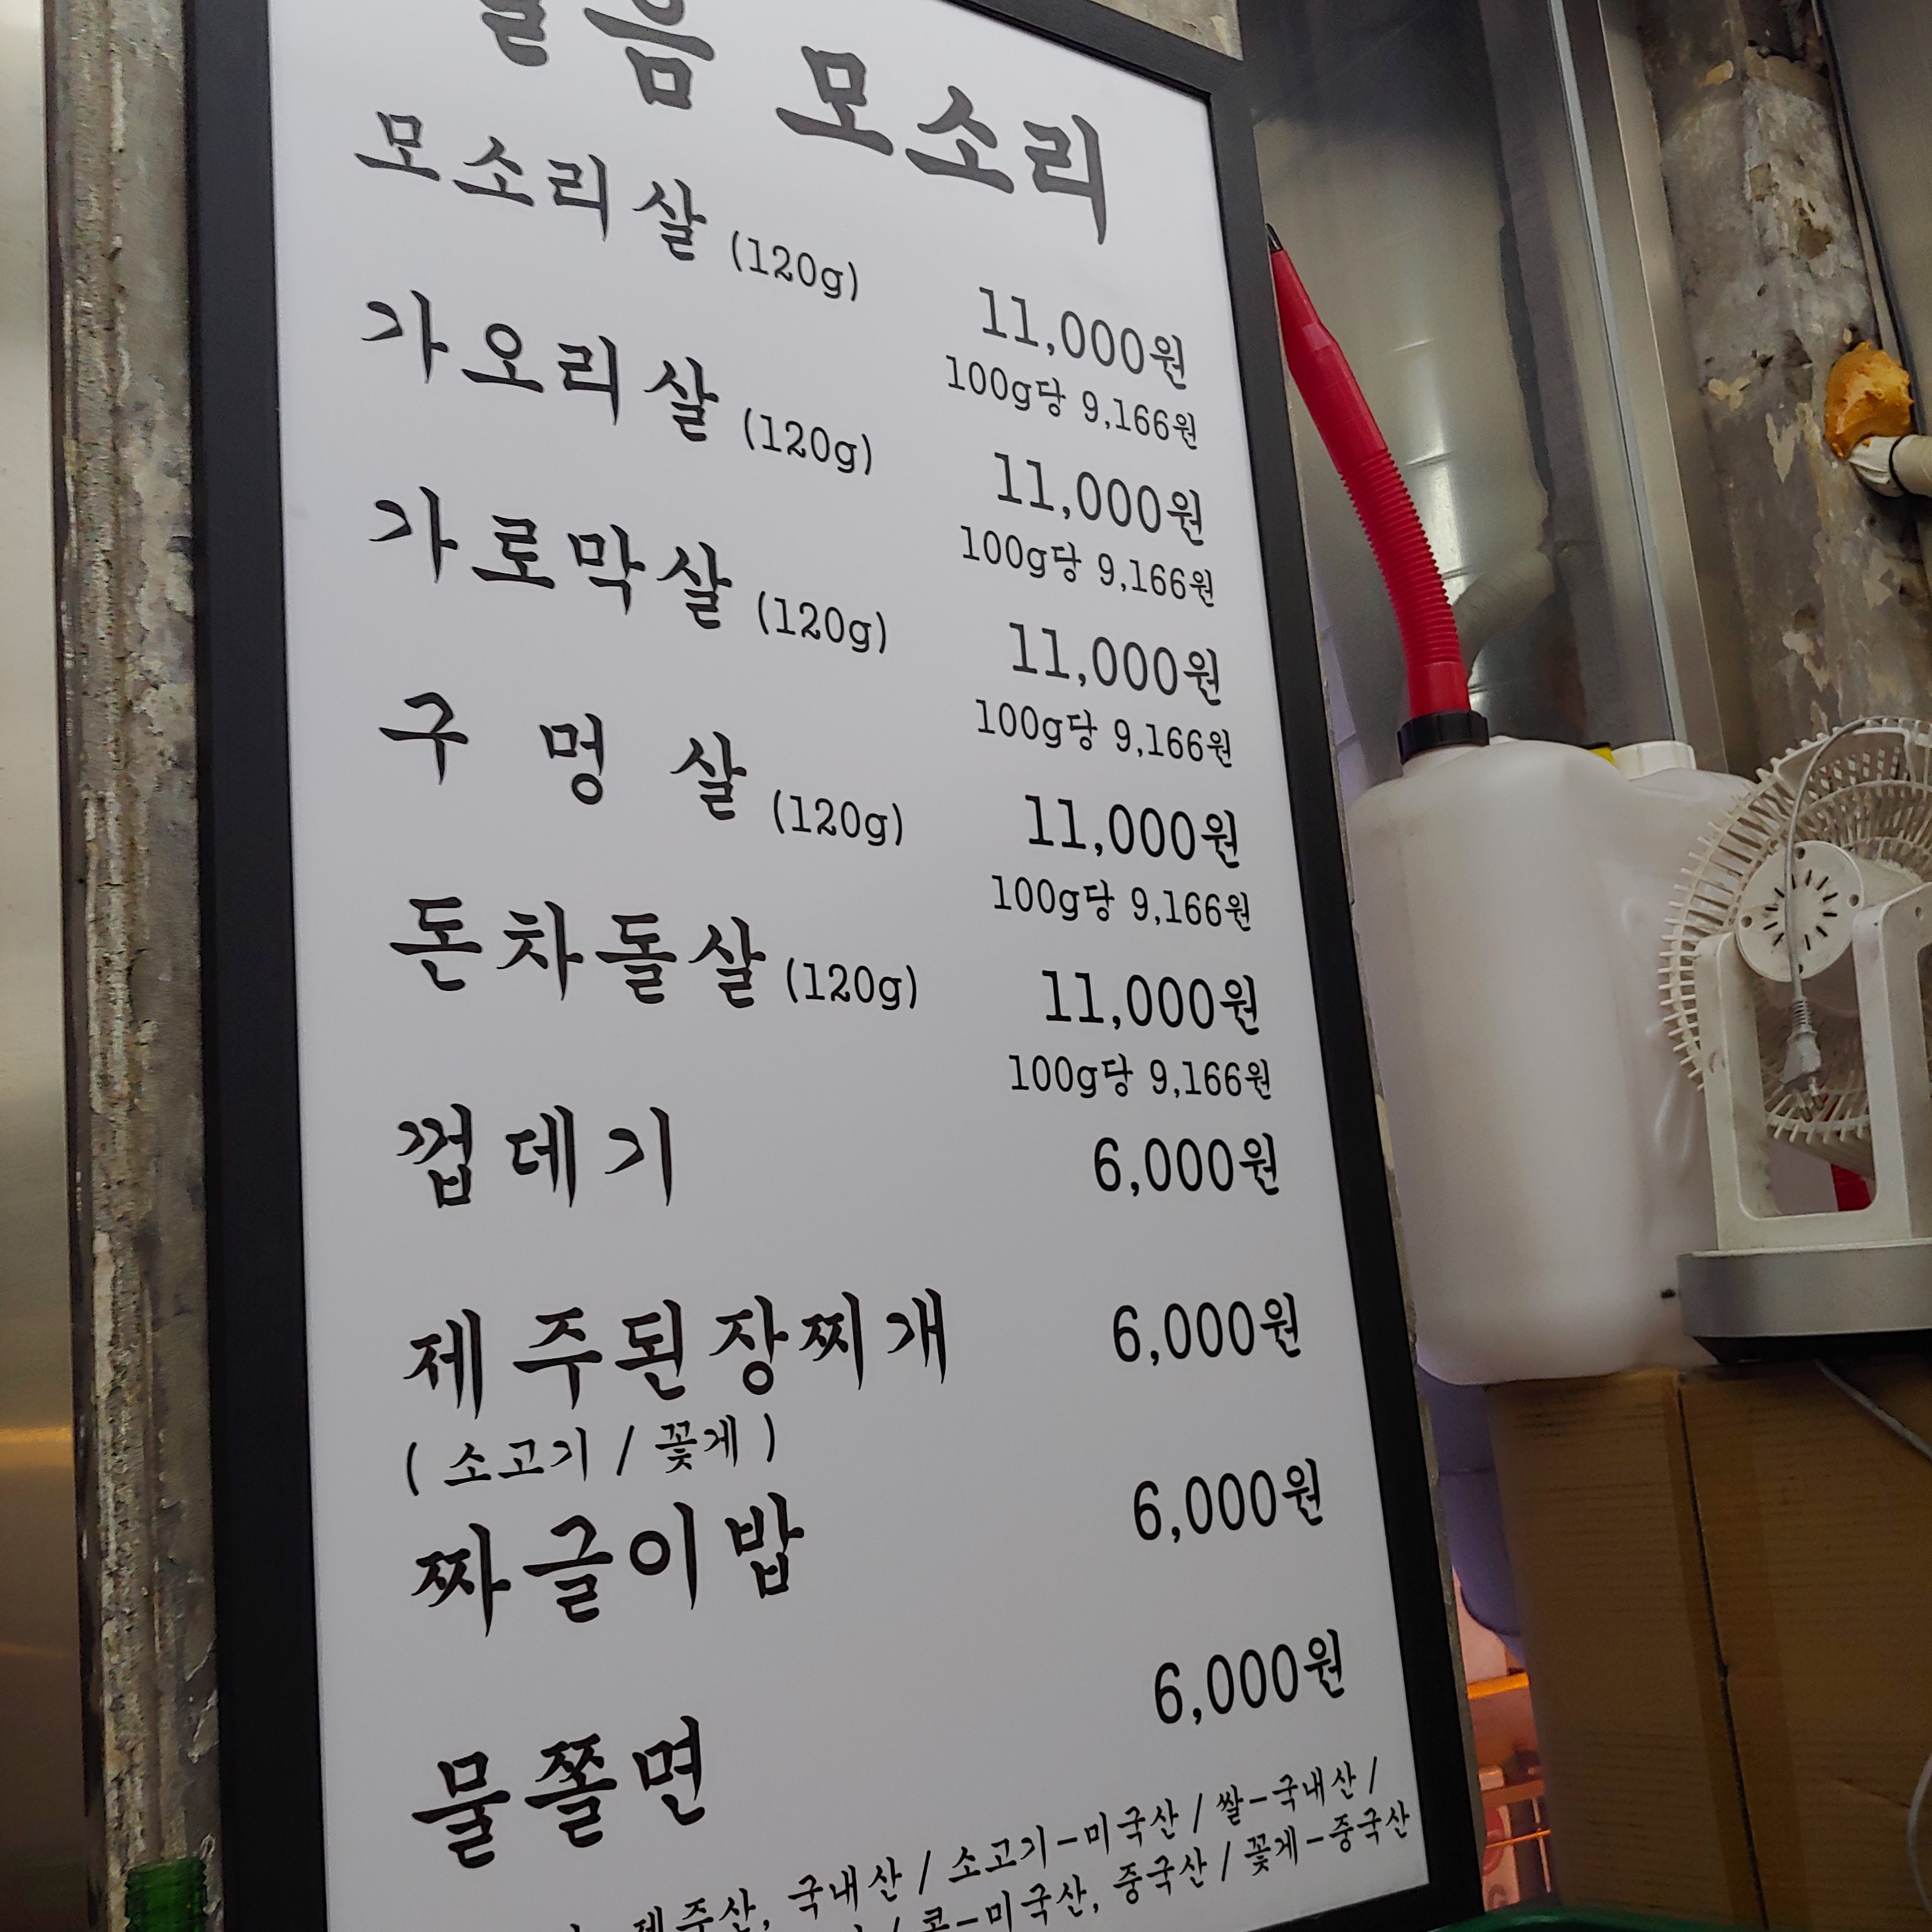 모소리
모소리살 (120g) 11,000원
100g당 9,166원
가오리살 (120g) 11,000원
100g당 9,166원
가로막살 (120g) 11,000원
100g당 9,166원
구멍살 (120g) 11,000원
100g당 9,166원
돈차돌살 (120g) 11,000원
100g당 9,166원
껍데기 6,000원
제주된장찌개 6,000원
( 소고기 / 꽃게 )
짜글이밥 6,000원
물쫄면 6,000원
제주산, 국내산 / 소고기-미국산 / 쌀-국내산 /
/ 콩-미국산, 중국산 / 꽃게-중국산